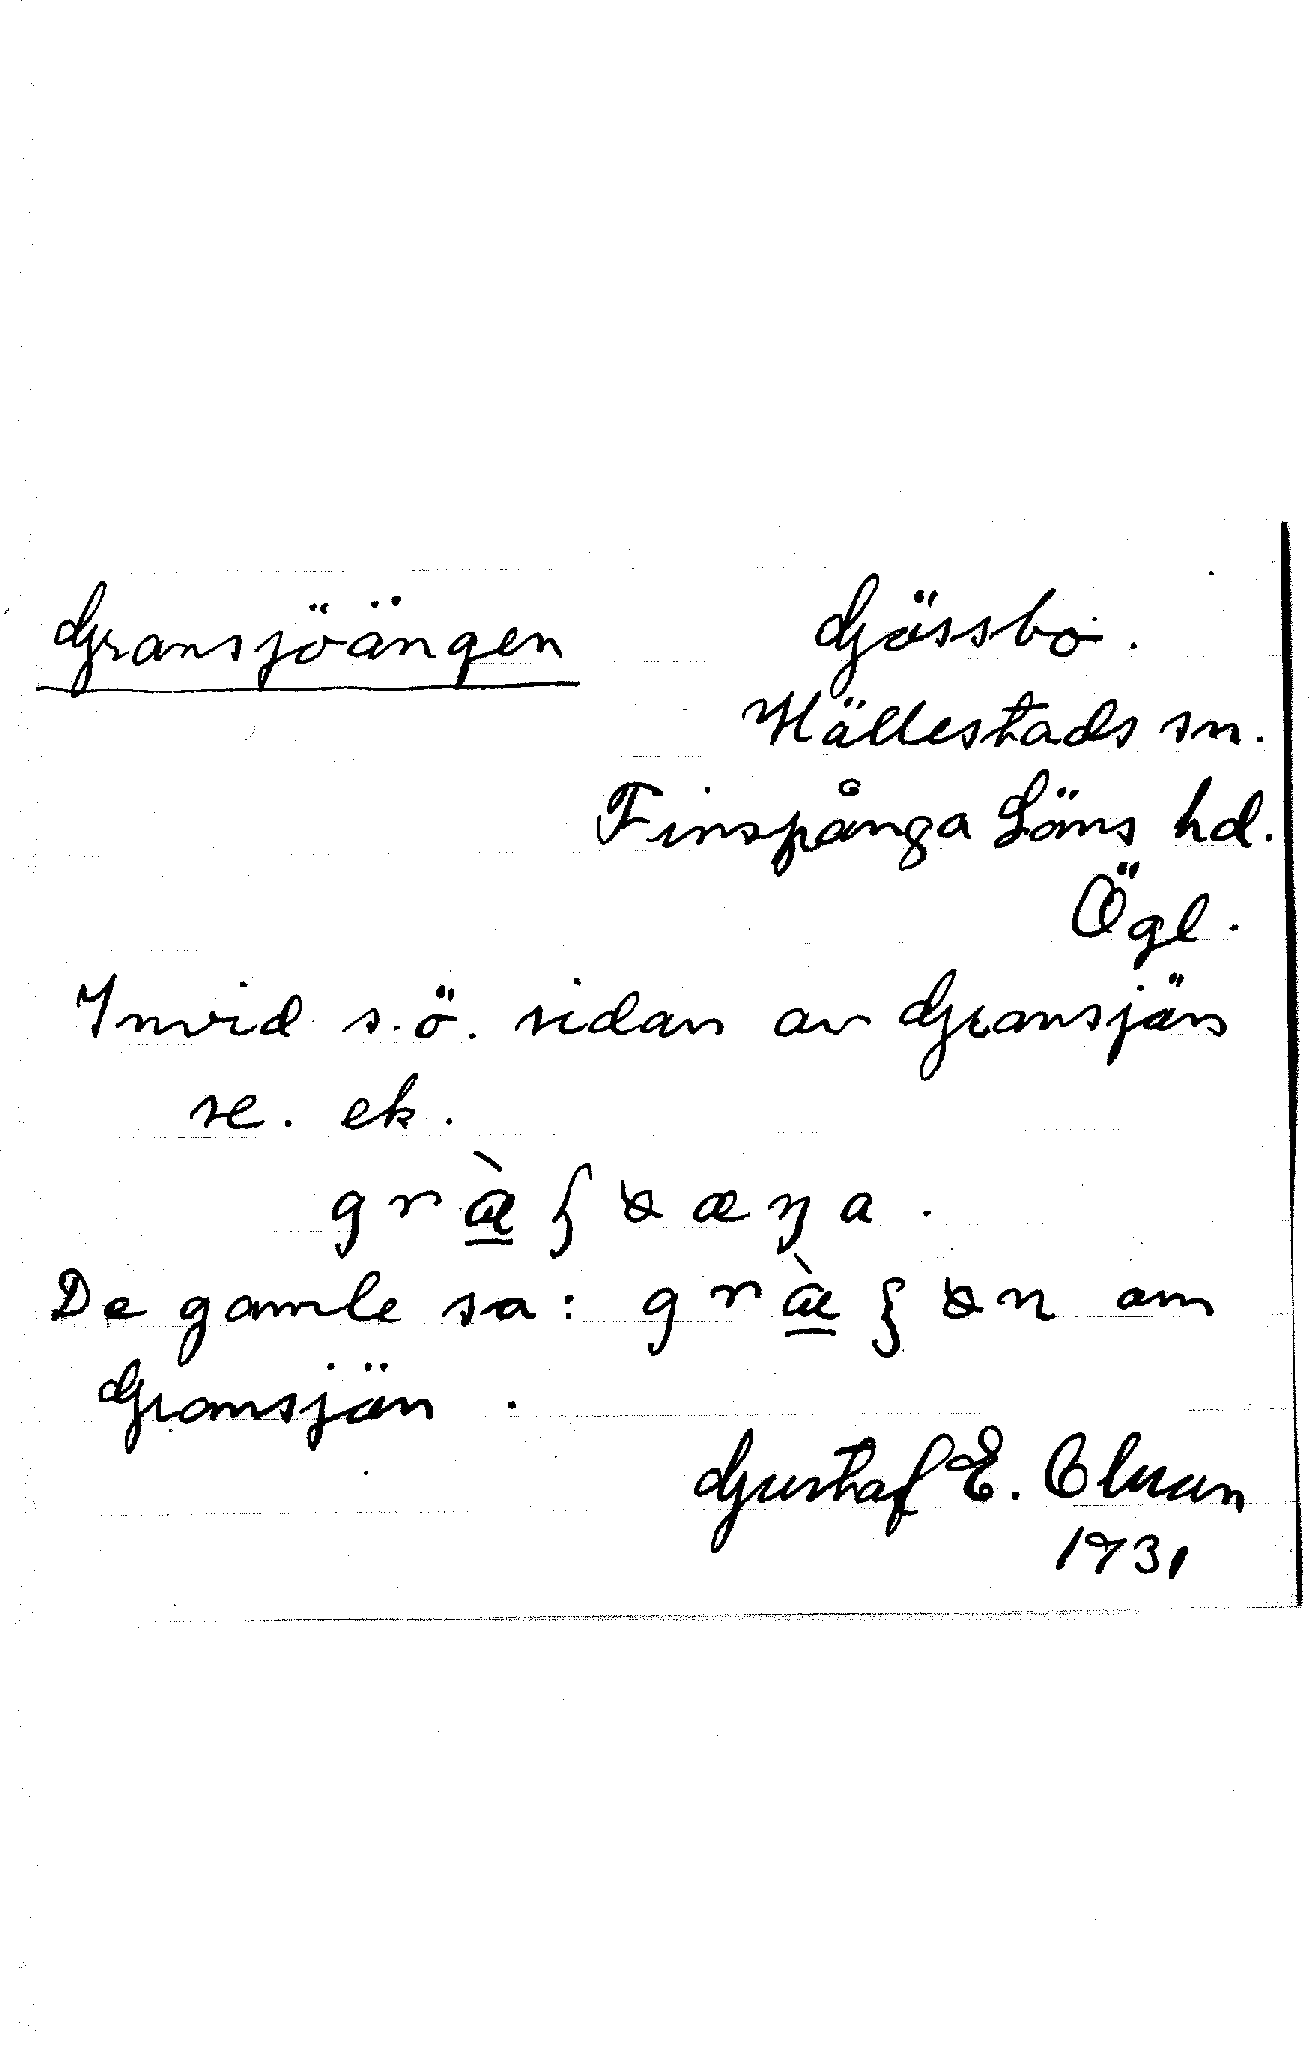 Gransjöängen
Gössbo.
Hällestads sn.
Finspånga Läns hd.
Ögl.
Invid s.ö. sidan av Gransjön
se. ek.
De gamle sa: om
Gransjön.
Gustaf E. Olsson
1931